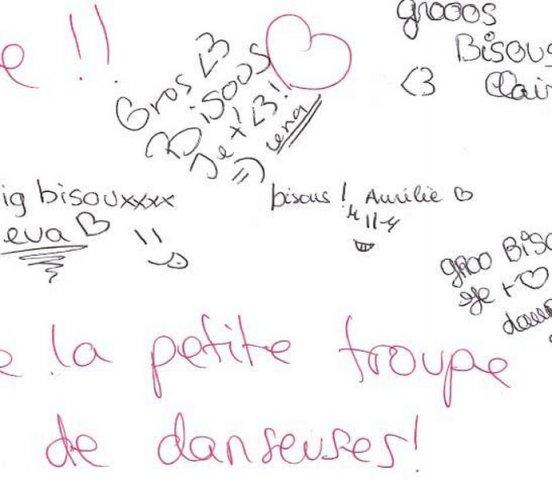 e !!
Gros <3
Bisous
Je t <3!
Lena
grooos
Bisous
<3 Clair
ig bisouxxxx
eva
bisous ! Aurélie
groo Biso
Je t
e la petite troupe
de danseuses!